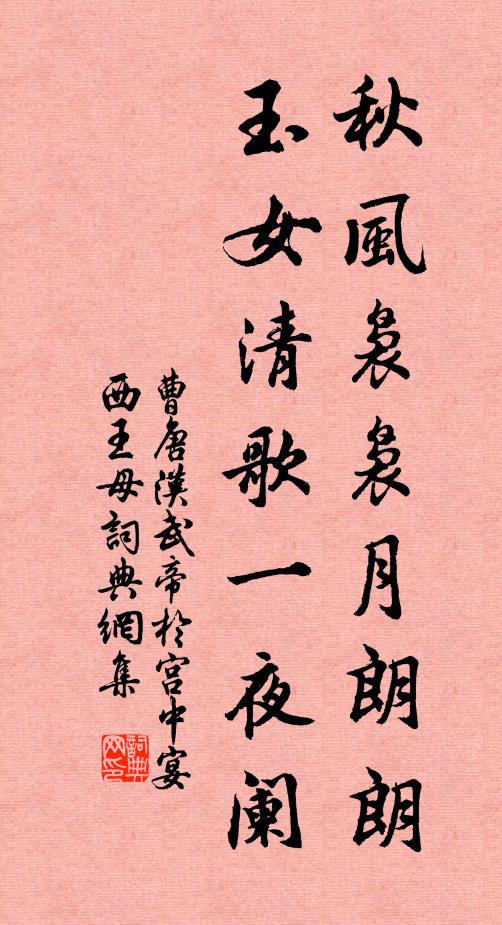 秋風裊裊月朗朗
玉女清歌一夜阑
曹唐漢武帝於宮中宴
西王母詞典網集
詞典网印